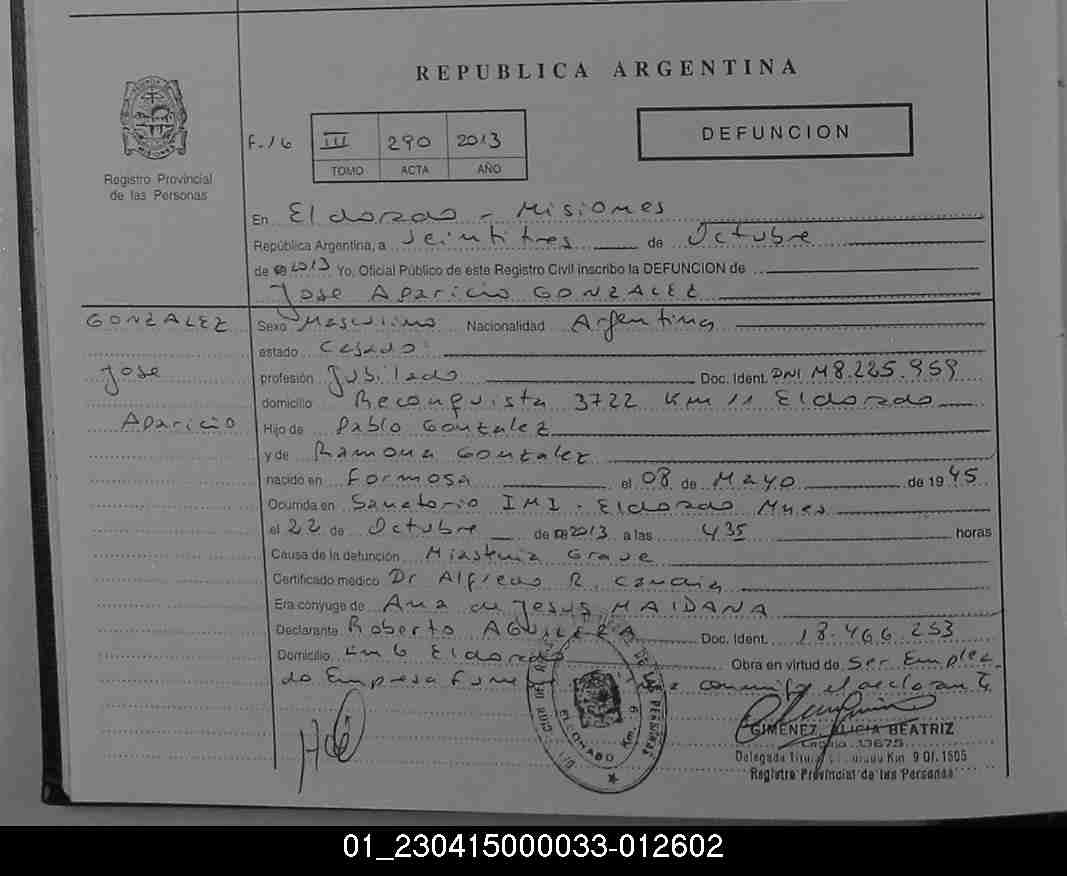 REPUBLICA ARGENTINA
Registro Provincial
de las Personas
F. 16
III 290 2013
TOMO ACTA AÑO
DEFUNCION
En Eldorado - Misiones
República Argentina, a veintitres de Octubre
de 2013 Yo, Oficial Público de este Registro Civil inscribo la DEFUNCION de
Jose Aparicio GONZALEZ
GONZALEZ
Jose
Aparicio
Sexo Masculino Nacionalidad Argentina
estado Casado
profesión Jubilado Doc. Ident. DNI M8.225.959
domicilio Reconquista 3722 Km 11 Eldorado
Hijo de Pablo Gonzalez
y de Ramona Gonzalez
nacido en Formosa el 08 de Mayo de 1945
Ocurrida en Sanatorio IMI - Eldorado Mnes
el 22 de Octubre de 2013 a las 435 horas
Causa de la defunción Miastenia Grave
Certificado médico Dr Alfredo R.
Era cónyuge de Ana de Jesus MAIDANA
Declarante Roberto AGUILERA Doc. Ident. 18.466.253
Domicilio Km 6 Eldorado Obra en virtud de Ser Emplea
do Empresa el declarante
DE LAS PERSONAS
ELDORADO Km. 9
GIMENEZ, ALICIA BEATRIZ
13675
Delegada Km. 9 Of. 1505
Registro Provincial de las Personas
01_230415000033-012602